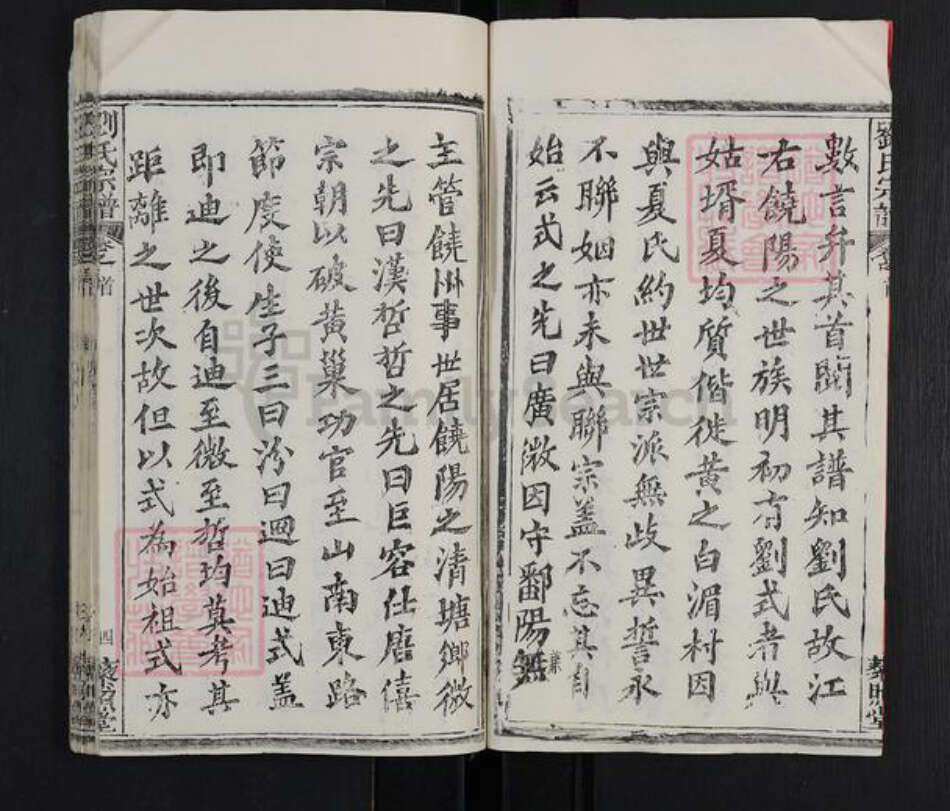 數言弁其首閱其譜知劉氏故江
右饒陽之世族明初有劉式者與
姑壻夏均質偕徙黃之白湄村因
與夏氏約世世宗派無歧異誓永
不聯姻亦未與聯宗蓋不忘其自
始云式之先曰廣微因守鄱陽無
主管饒州事世居饒陽之清塘鄉微
之先曰漢哲哲之先曰巨容仕唐僖
宗朝以破黃巢功官至山南東路
節度使生子三曰汾曰迥曰迪式蓋
即迪之後自迪至微至哲均莫考其
距離之世次故但以式為始祖式亦
劉氏宗譜
卷之
首
四
劉氏宗譜
FamilySearch